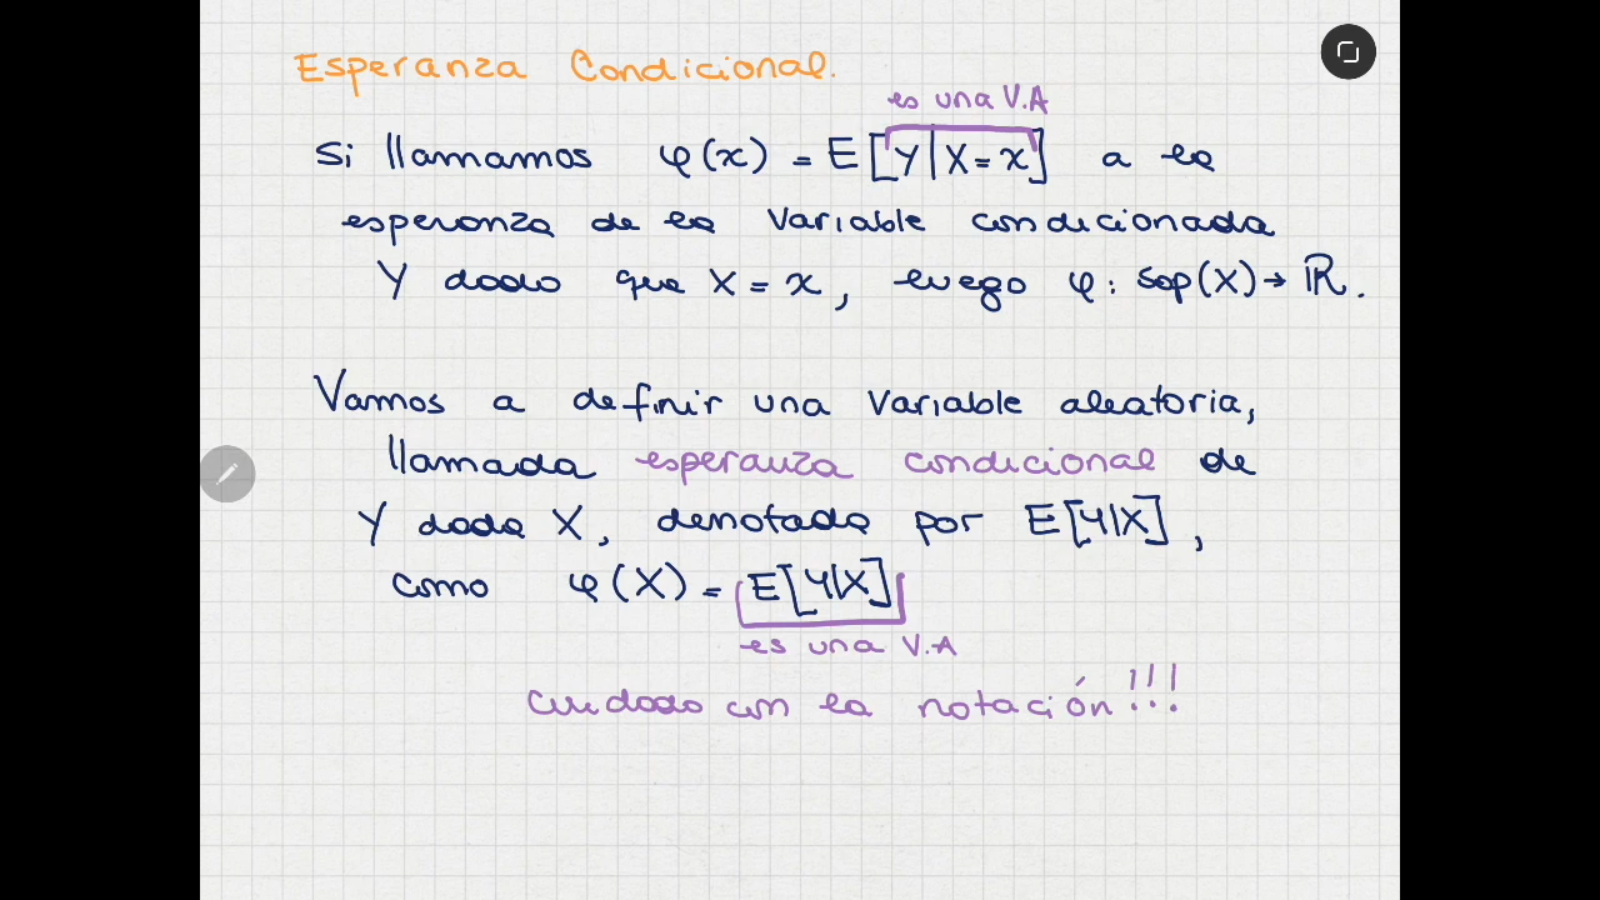 Esperanza Condicional.
es una V.A
Si llamamos φ(x) = E[Y|X=x] a la
esperanza de la variable condicionada
Y dado que X = x, luego φ: sop(X) → ℝ.
Vamos a definir una variable aleatoria,
llamada esperanza condicional de
Y dada X, denotada por E[Y|X],
como φ(X) = E[Y|X]
es una V.A
Cuidado con la notación!!!